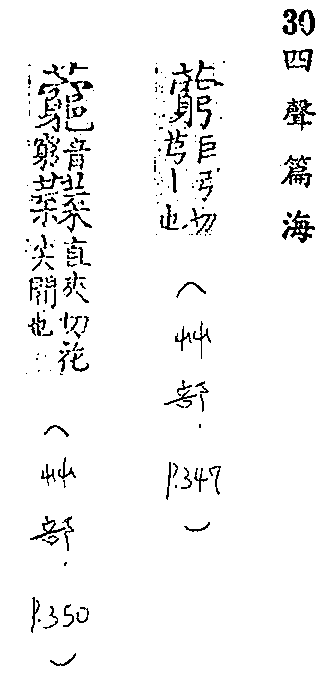 30 四聲篇海
藭 巨弓切
芎丨也
(艸部. P.347)
音
窮
直夾切花
尖開也
(艸部. P.350)